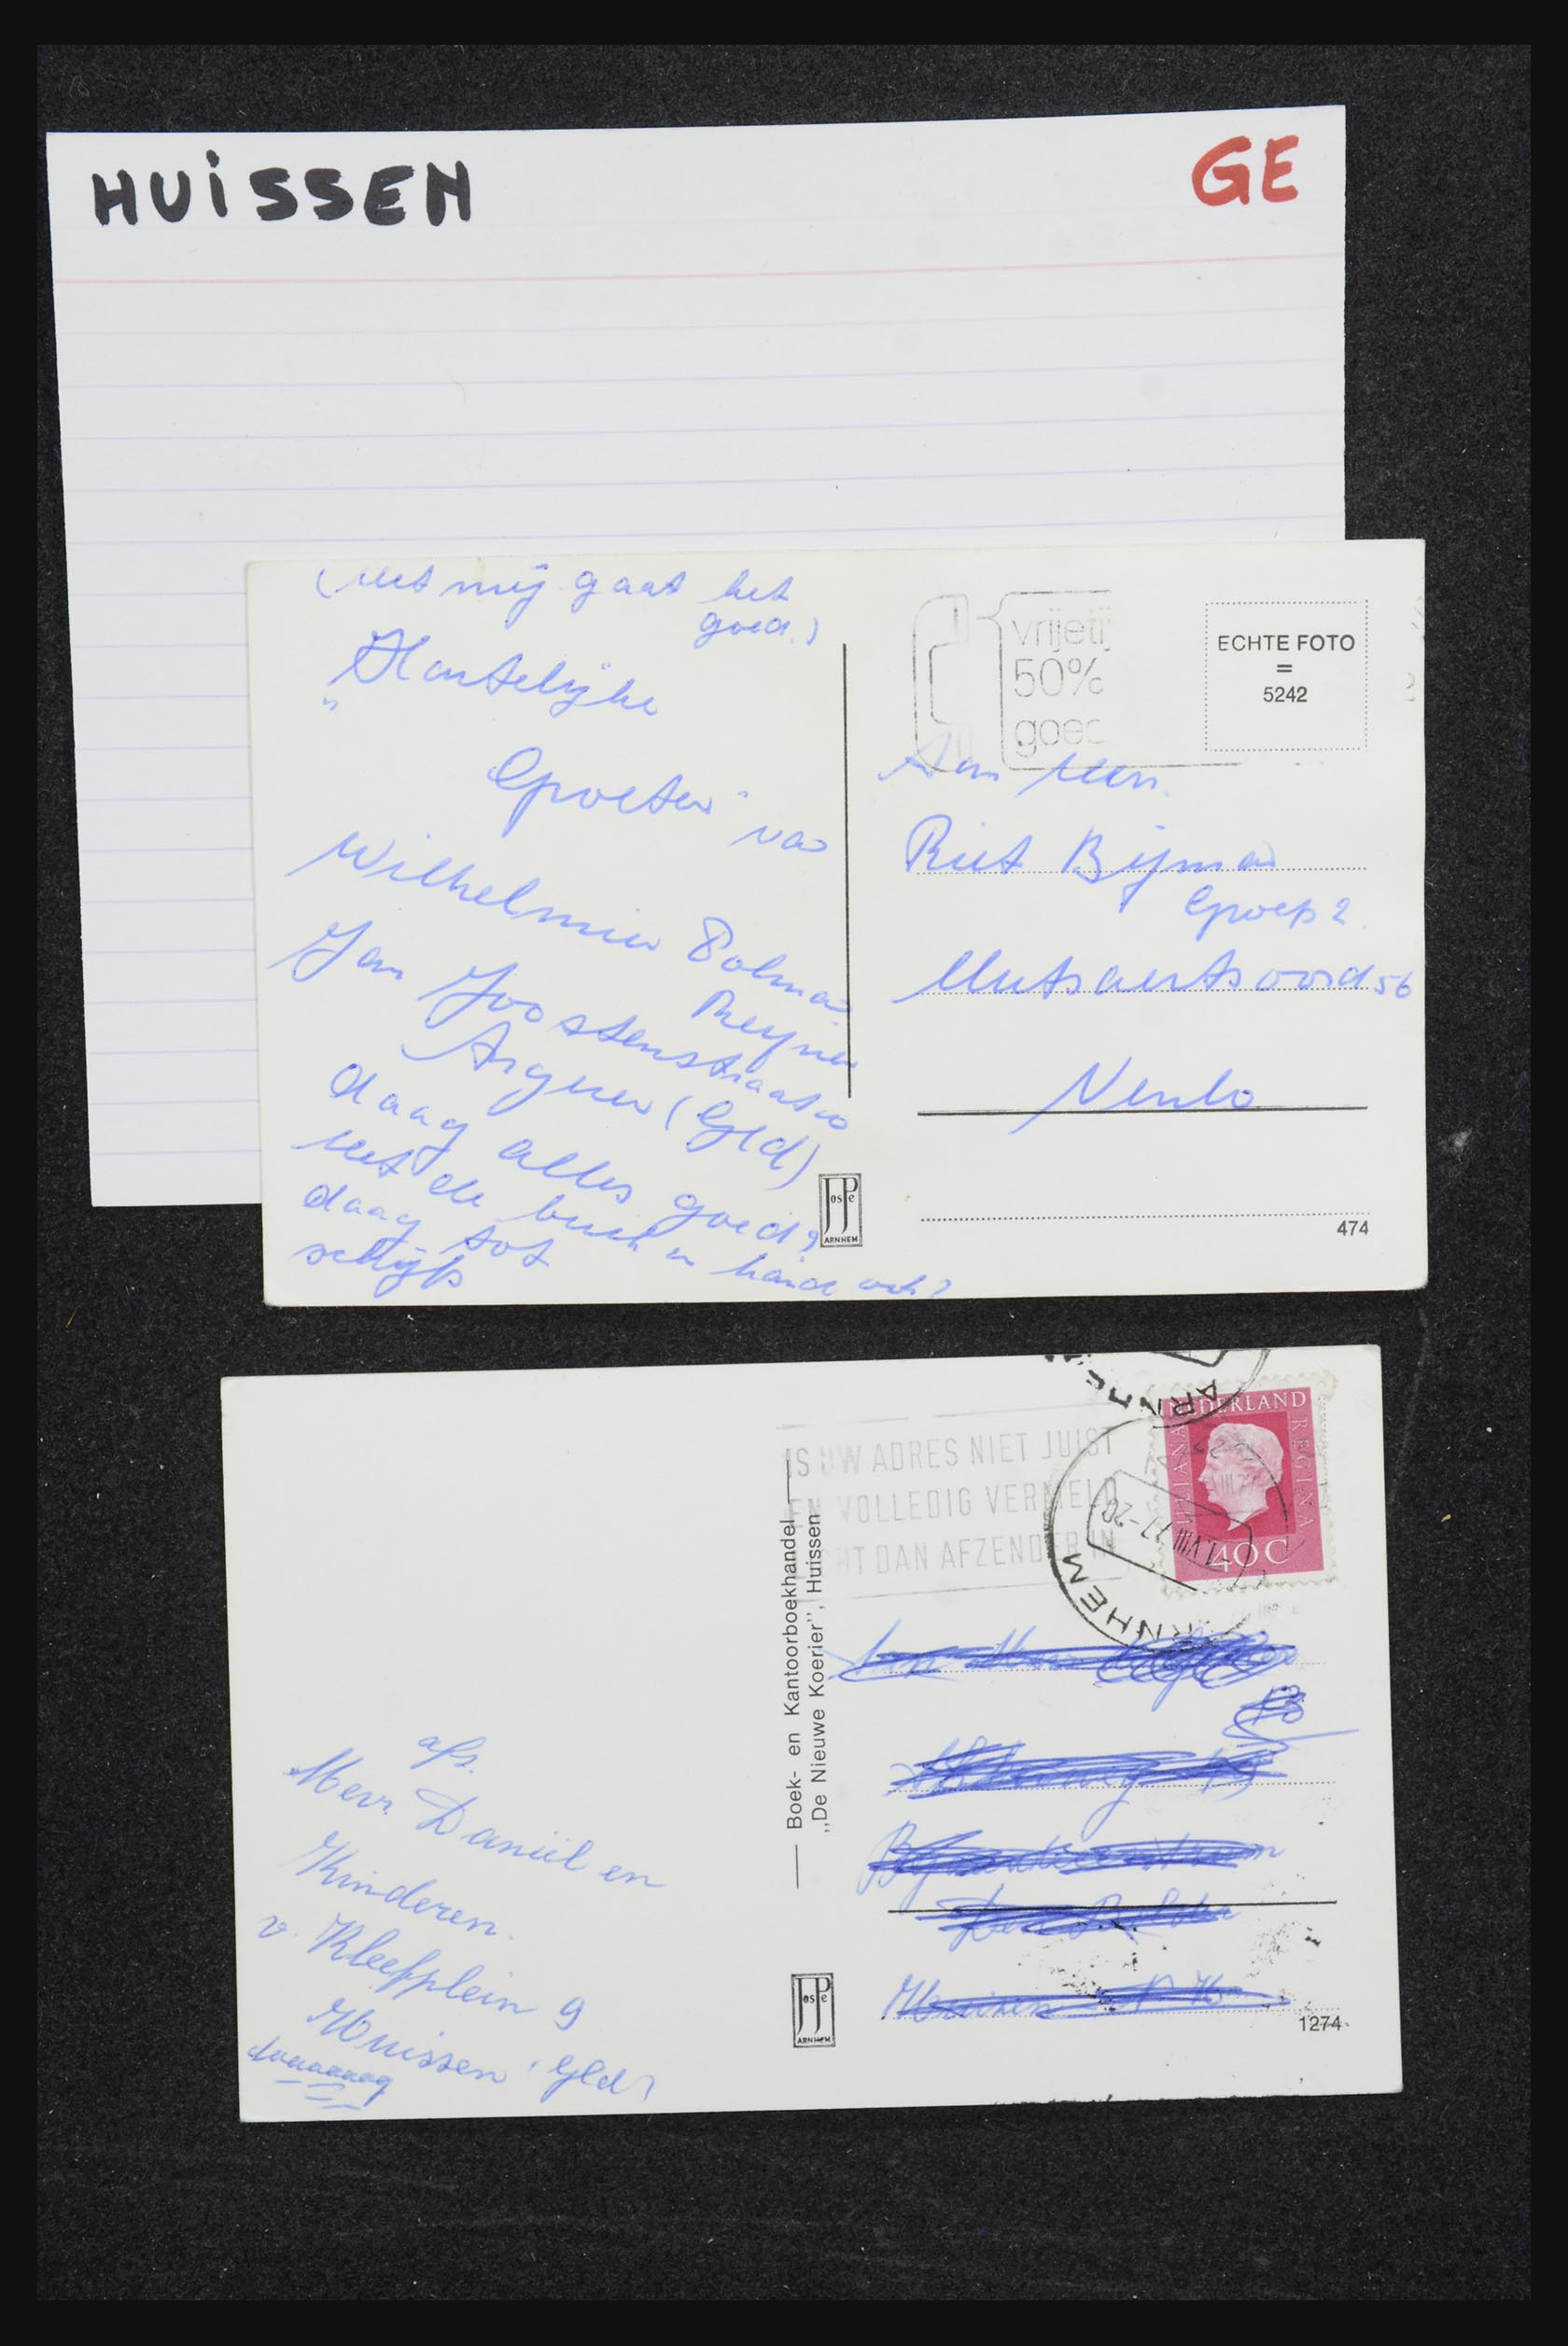 HUiSSEN
GE
(met mij gaat het
goed.)
"Hartelijke
Groeten" van
Wilhelmien Polman
Reynen
Jan Joostenstraat 10
Angeren (Gld)
daag alles goed?
met de buik en hande ook?
daag tot
schrijfs
vrijetij
50%
goed
ECHTE FOTO
=
5242
Aan Mevr.
Riet Bijman
Groep 2.
Mutsaertsoord 56
Venlo
JosPe
ARNHEM
474
IS UW ADRES NIET JUIST
EN VOLLEDIG VERMELD
DAN AFZENDER IN
ARNHEM
NEDERLAND
JULIANA REGINA
40 C
ARNHEM
VIII 77-20
Boek- en Kantoorboekhandel
,,De Nieuwe Koerier'', Huissen
afs.
Mevr. Daniël en
Kinderen.
v. Kleefplein 9
Huissen (Gld)
JosPe
ARNHEM
1274